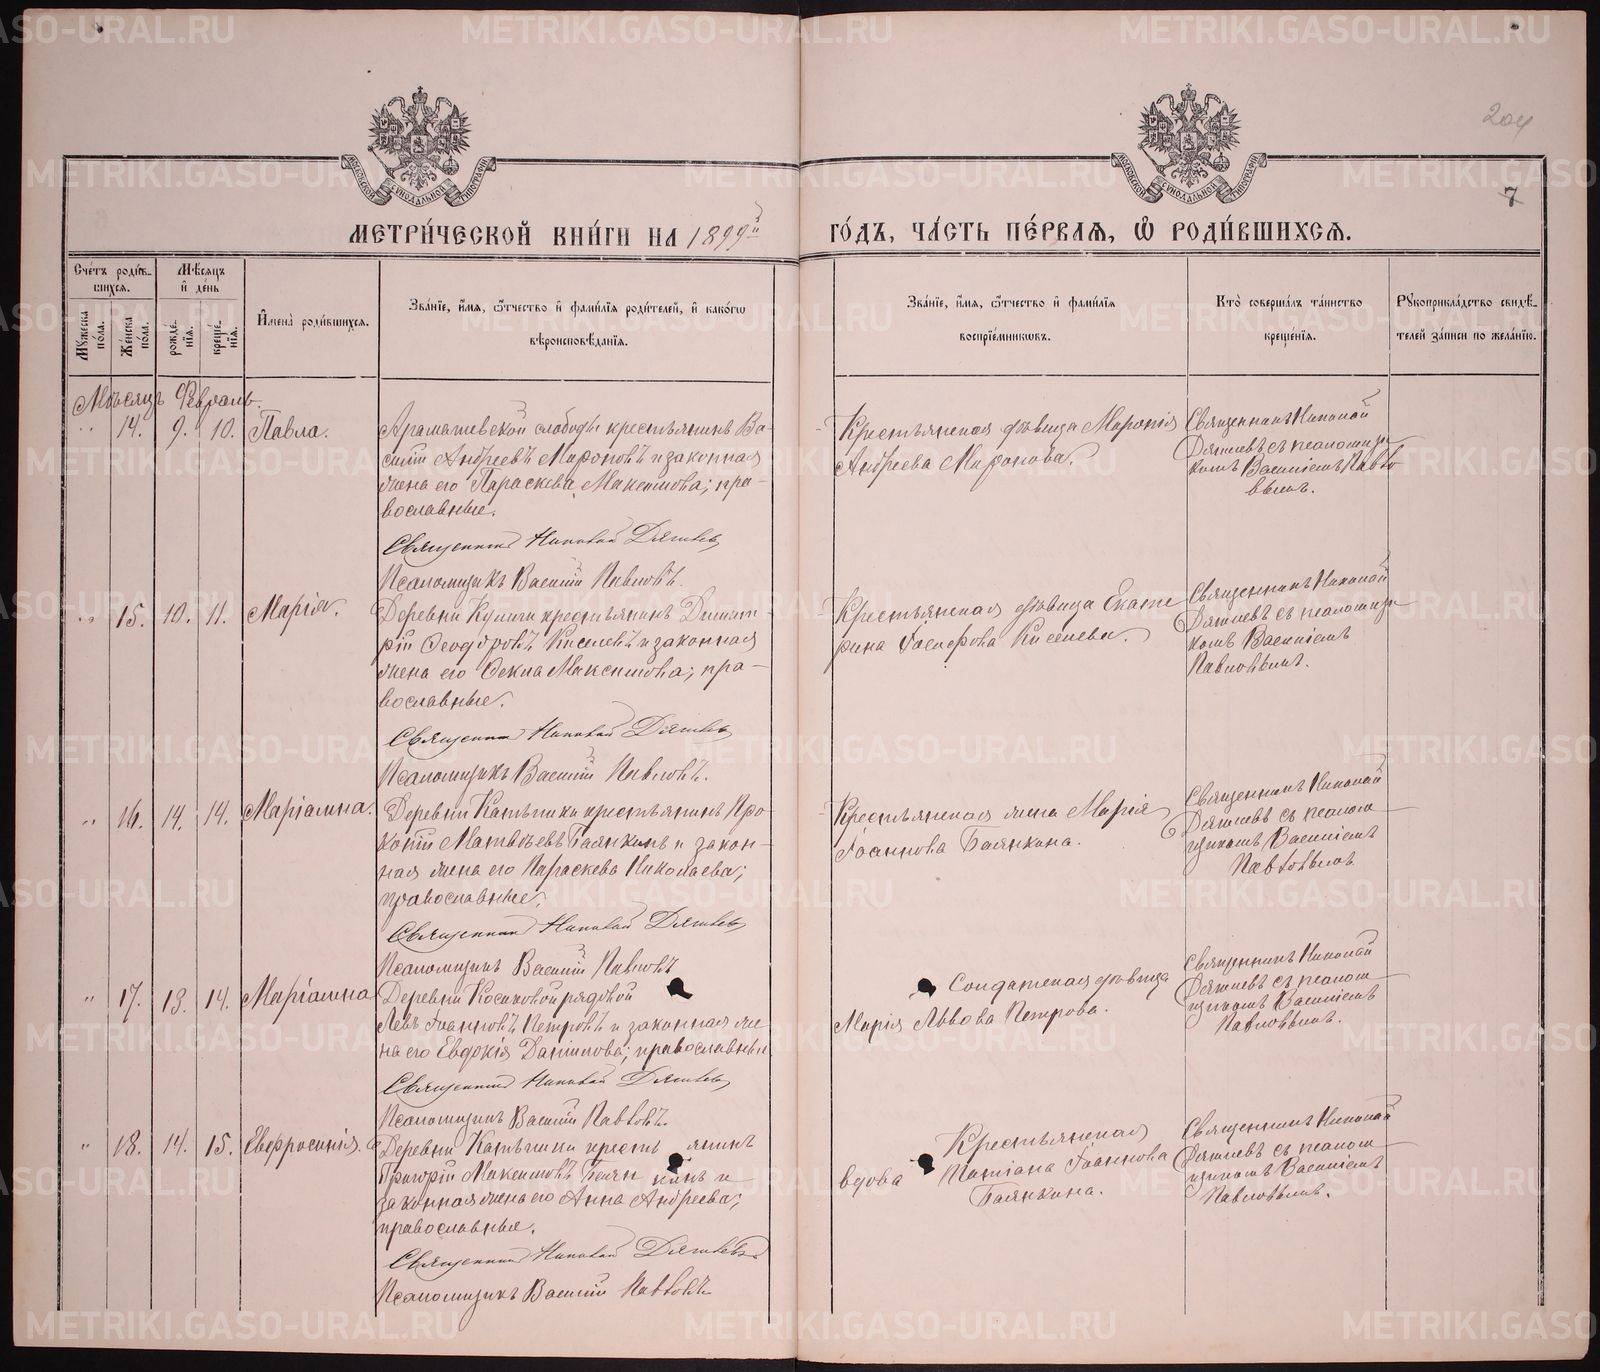 204
7
МОСКОВСКОЙ СѴНОДАЛЬНОЙ ТИПОГРАФІИ
МОСКОВСКОЙ СѴНОДАЛЬНОЙ ТИПОГРАФІИ
МЕТРИ́ЧЕСКОЙ КНИ́ГИ НА 1899й ГО́ДЪ, ЧА́СТЬ ПЕ́РВАЯ, Ѡ РОДИ́ВШИХСЯ.
Сче́тъ роди́в-
шихся.
Му́жеска по́ла.
Же́нска по́ла.
Мѣ́сяцъ и̑ де́нь
рожде́-нїя.
креще́-нїя.
И̑мена̀ роди́вшихся.
Зва́нїе, и̑́мя, ѻ̑́тчество и̑ фами́лїя роди́телей, и̑ како́гѡ
вѣроисповѣ́данїя.
Зва́нїе, и̑́мя, ѻ̑́тчество и̑ фами́лїя
воспрїе́мникѡвъ.
Кто̀ соверша́лъ та́инство
креще́нїя.
Рукоприкла́дство свидѣ́-
телей за́писи по жела́нїю.
Мѣсяцъ Февраль.
" 14. 9. 10. Павла.
Арамашевской слободы крестьянинъ Ва-
силій Андреевъ Мироновъ и законная
жена его Параскева Максимова; пра-
вославные.
Священникъ Николай Дягилевъ
Псаломщикъ Василій Павловъ.
Крестьянская дѣвица Маронія
Андреева Миронова.
Священникъ Николай
Дягилевъ съ псаломщи-
комъ Василіемъ Павло
вымъ.
" 15. 10. 11. Марія.
Деревни Кулиги крестьянинъ Димит-
рій Ѳеодоровъ Киселевъ и законная
жена его Ѳекла Максимова; пра-
вославные.
Священникъ Николай Дягилевъ
Псаломщикъ Василій Павловъ.
Крестьянская дѣвица Екате
рина Іосифова Киселева.
Священникъ Николай
Дягилевъ съ псаломщи-
комъ Василіемъ
Павловымъ.
" 16. 14. 14. Маріамна.
Деревни Катышки крестьянинъ Про-
копій Матвѣевъ Баянкинъ и закон-
ная жена его Параскева Николаева;
православные.
Священникъ Николай Дягилевъ
Псаломщикъ Василій Павловъ
Крестьянская жена Марія
Іоаннова Баянкина.
Священникъ Николай
Дягилевъ съ псалом-
щикомъ Василіемъ
Павловымъ
" 17. 13. 14. Маріамна
Деревни Косиковой рядовой
Левъ Іоанновъ Петровъ и законная же
на его Евдокія Даніилова; православные
Священникъ Николай Дягилевъ
Псаломщикъ Василій Павловъ.
Солдатская дѣвица
Марія Львова Петрова.
Священникъ Николай
Дягилевъ съ псалом-
щикомъ Василіемъ
Павловымъ.
" 18. 14. 15. Евфросинія.
Деревни Катышки кресть янинъ
Григорій Максимовъ Баян кинъ и
законная жена его Анна Андреева;
православные.
Священникъ Николай Дягилевъ
Псаломщикъ Василій Павловъ
Крестьянская
вдова Татіана Іоаннова
Баянкина.
Священникъ Николай
Дягилевъ съ псалом-
щикомъ Василіемъ
Павловымъ.
METRIKI.GASO-URAL.RU